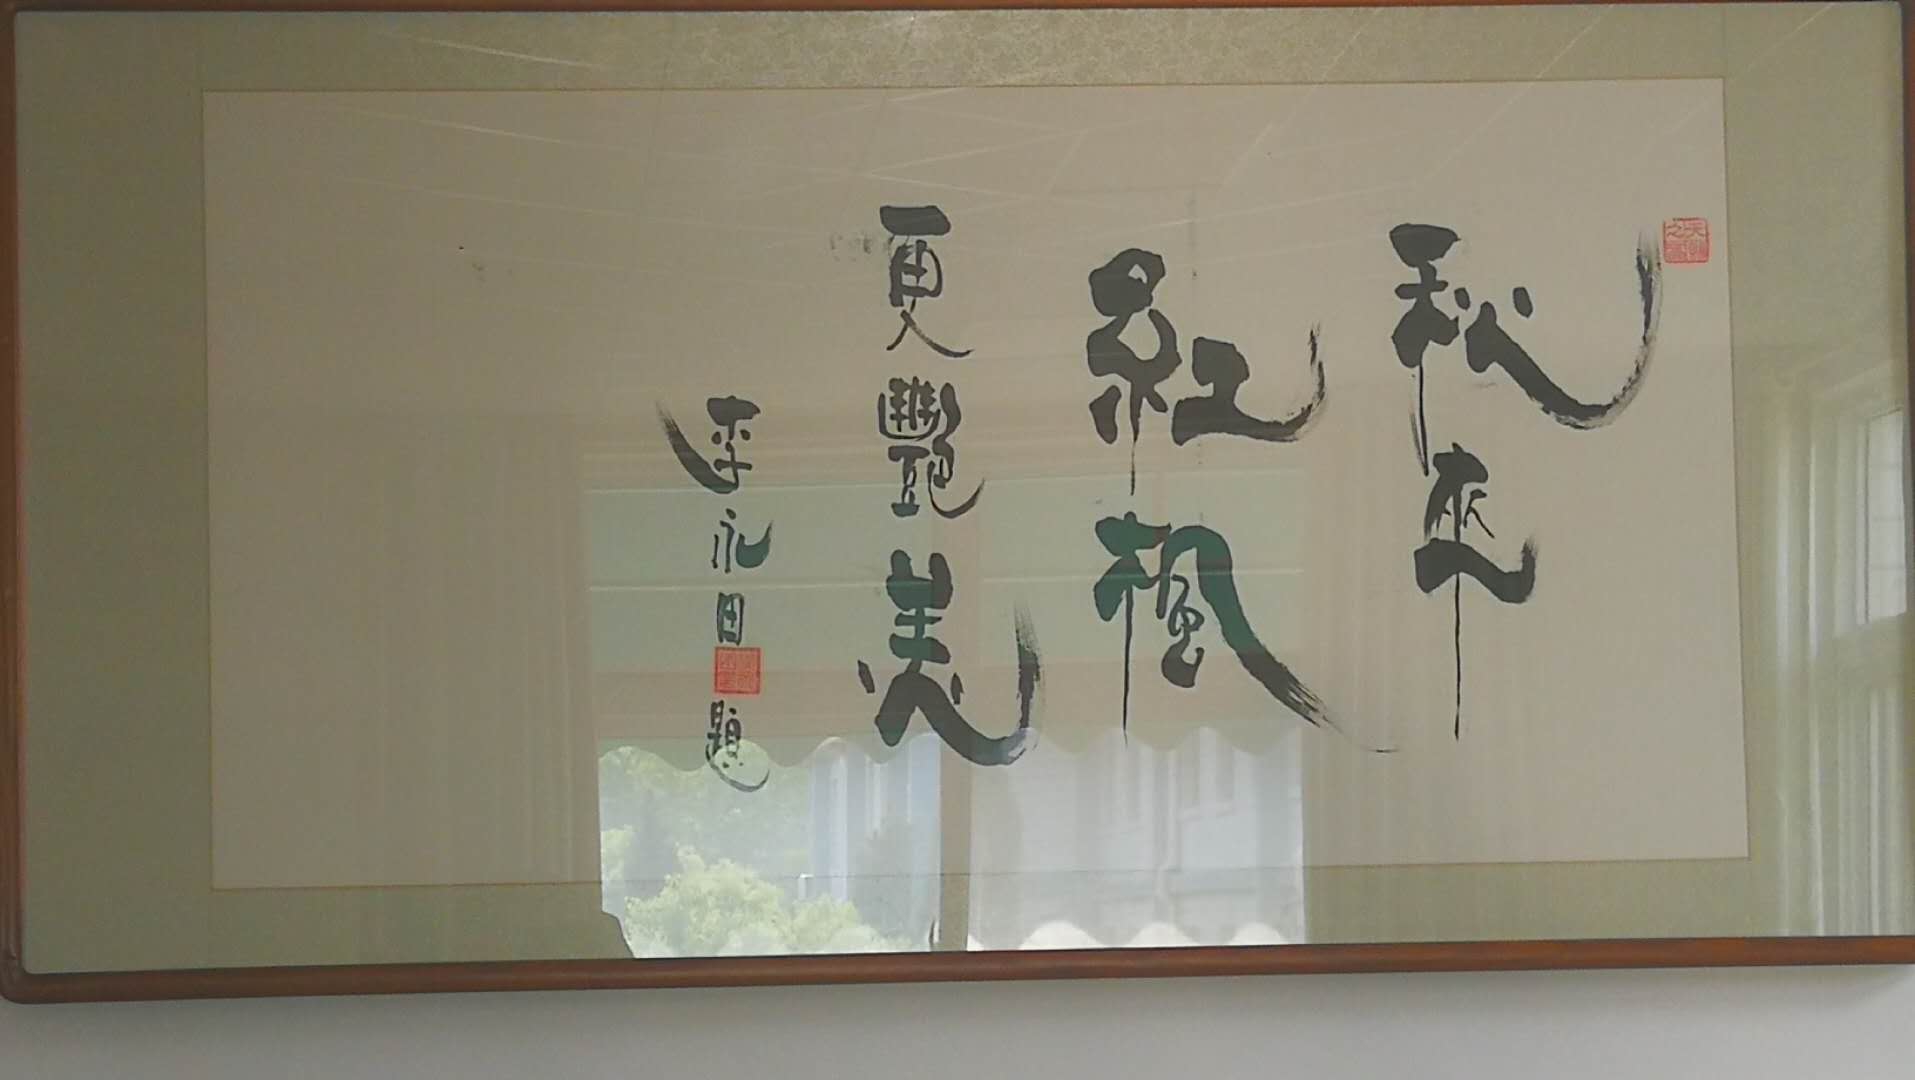 秋來
紅楓
更艷美
李永田題